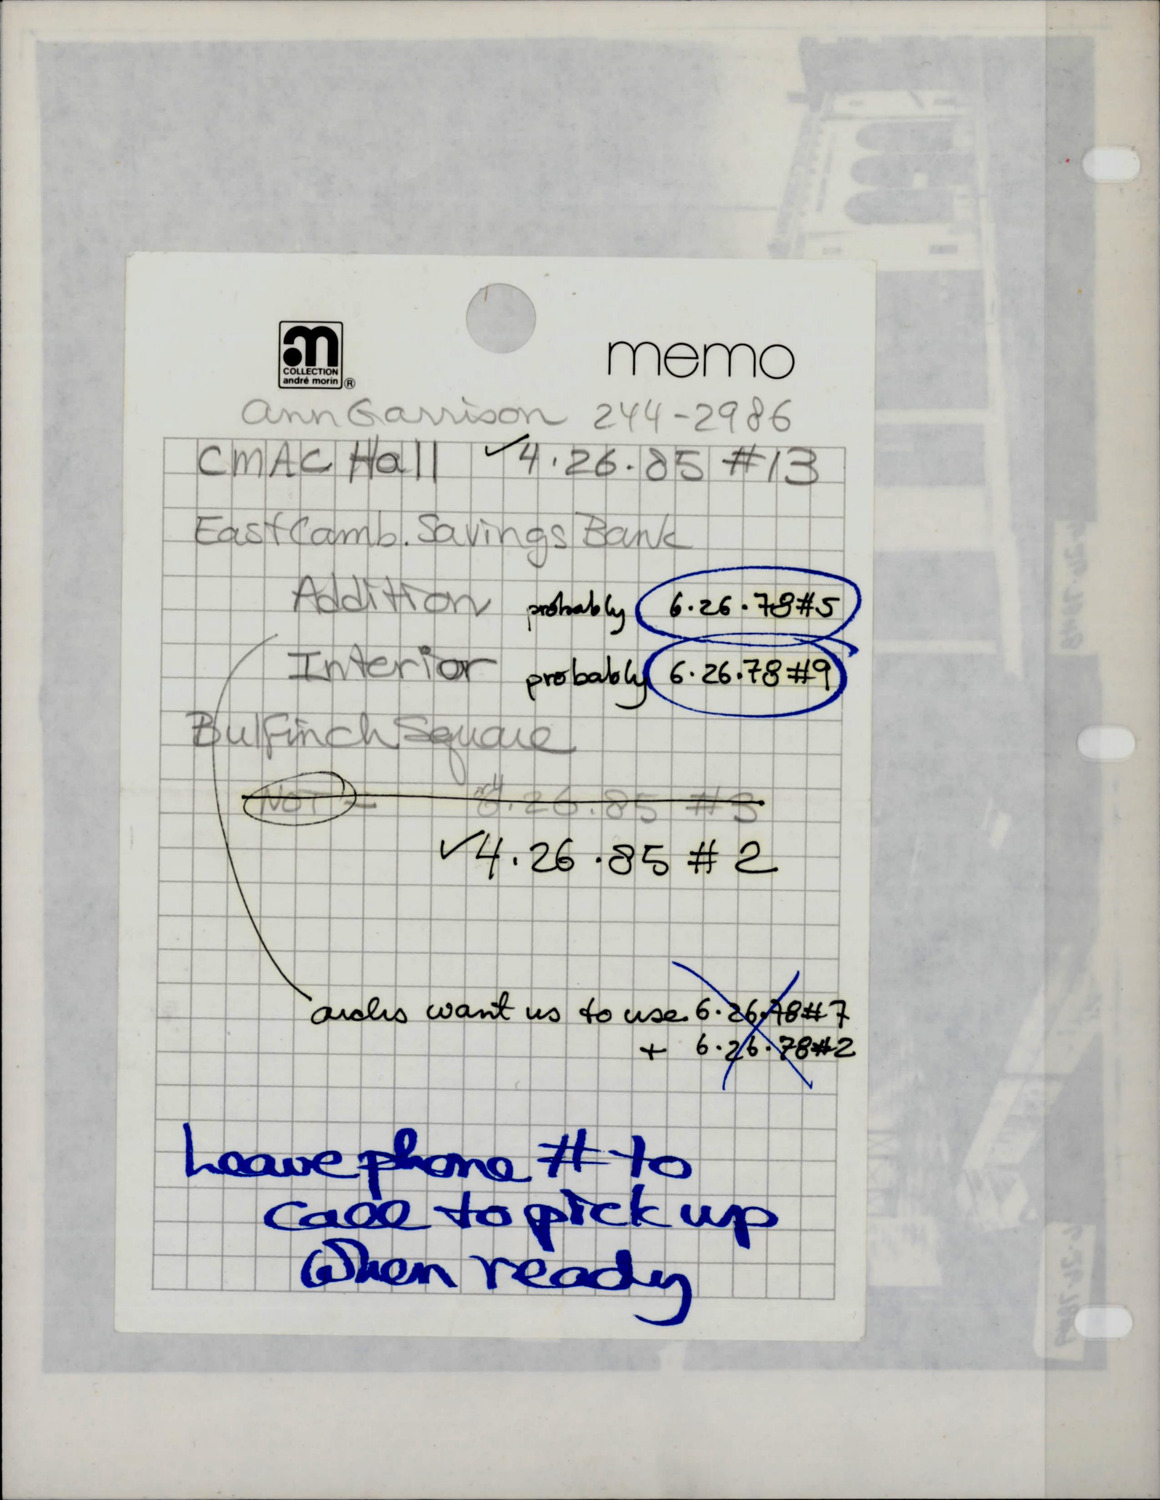 m
COLLECTION
andré morin ®
memo
Ann Garrison 244-2986
CMAC Hall ✓4.26.85 #13
East Camb. Savings Bank
Addition probably 6.26.78#5
Interior probably 6.26.78#9
Bulfinch Square
NOT - 26.85 #3
✓4.26.85 # 2
archs want us to use 6.26.78#7
+ 6.26.78#2
Leave phone # to
call to pick up
when ready